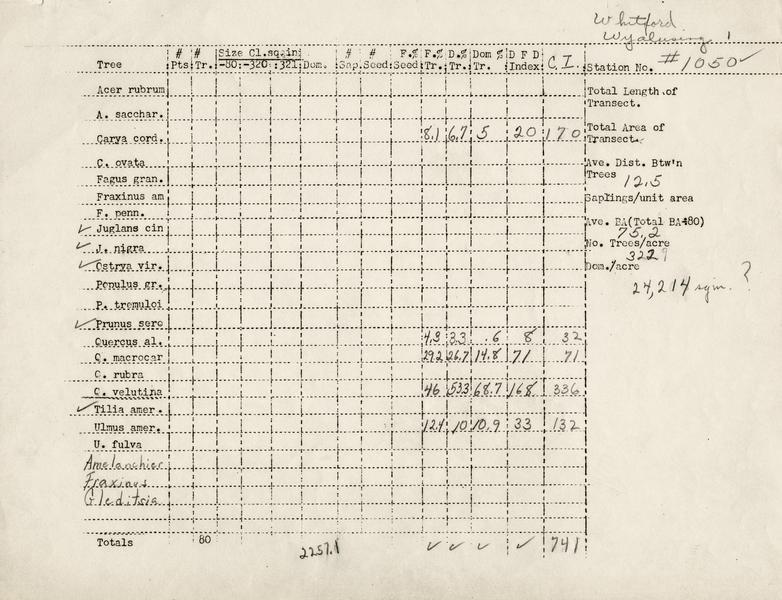 Whitford
Wyalusing 1
Tree # Pts. # Tr. Size Cl.sq.in. -80:-320 :321 Dom. # Sap. # Seed F.% Seed F.% Tr. D.% Tr. Dom % Tr. D F D Index C. I. Station No. #1050 ✓
Acer rubrum Total Length of Transect.
A. sacchar.
Carya cord. 8.1 6.7 5 20 170 Total Area of Transect.
C. ovata Ave. Dist. Btw'n
Fagus gran. Trees 12.5
Fraxinus am Saplings/unit area
F. penn.
✓ Juglans cin Ave. BA(Total BA÷80) 75.2
✓ J. nigra No. Trees/acre 322
✓ Ostrya vir. Dom./acre
Populus gr. 24,214 sq in. ?
P. tremuloi
✓ Prunus sero
Quercus al. 4.3 3.3 .6 8 32
Q. macrocar 29.2 26.7 14.8 71 71
Q. rubra
Q. velutina 46 53.3 68.7 168 336
✓ Tilia amer.
Ulmus amer. 12.4 10 10.9 33 132
U. fulva
Amelanchier
Fraxinus
Gleditsia
Totals 80 2257.1 ✓ ✓ ✓ ✓ 741